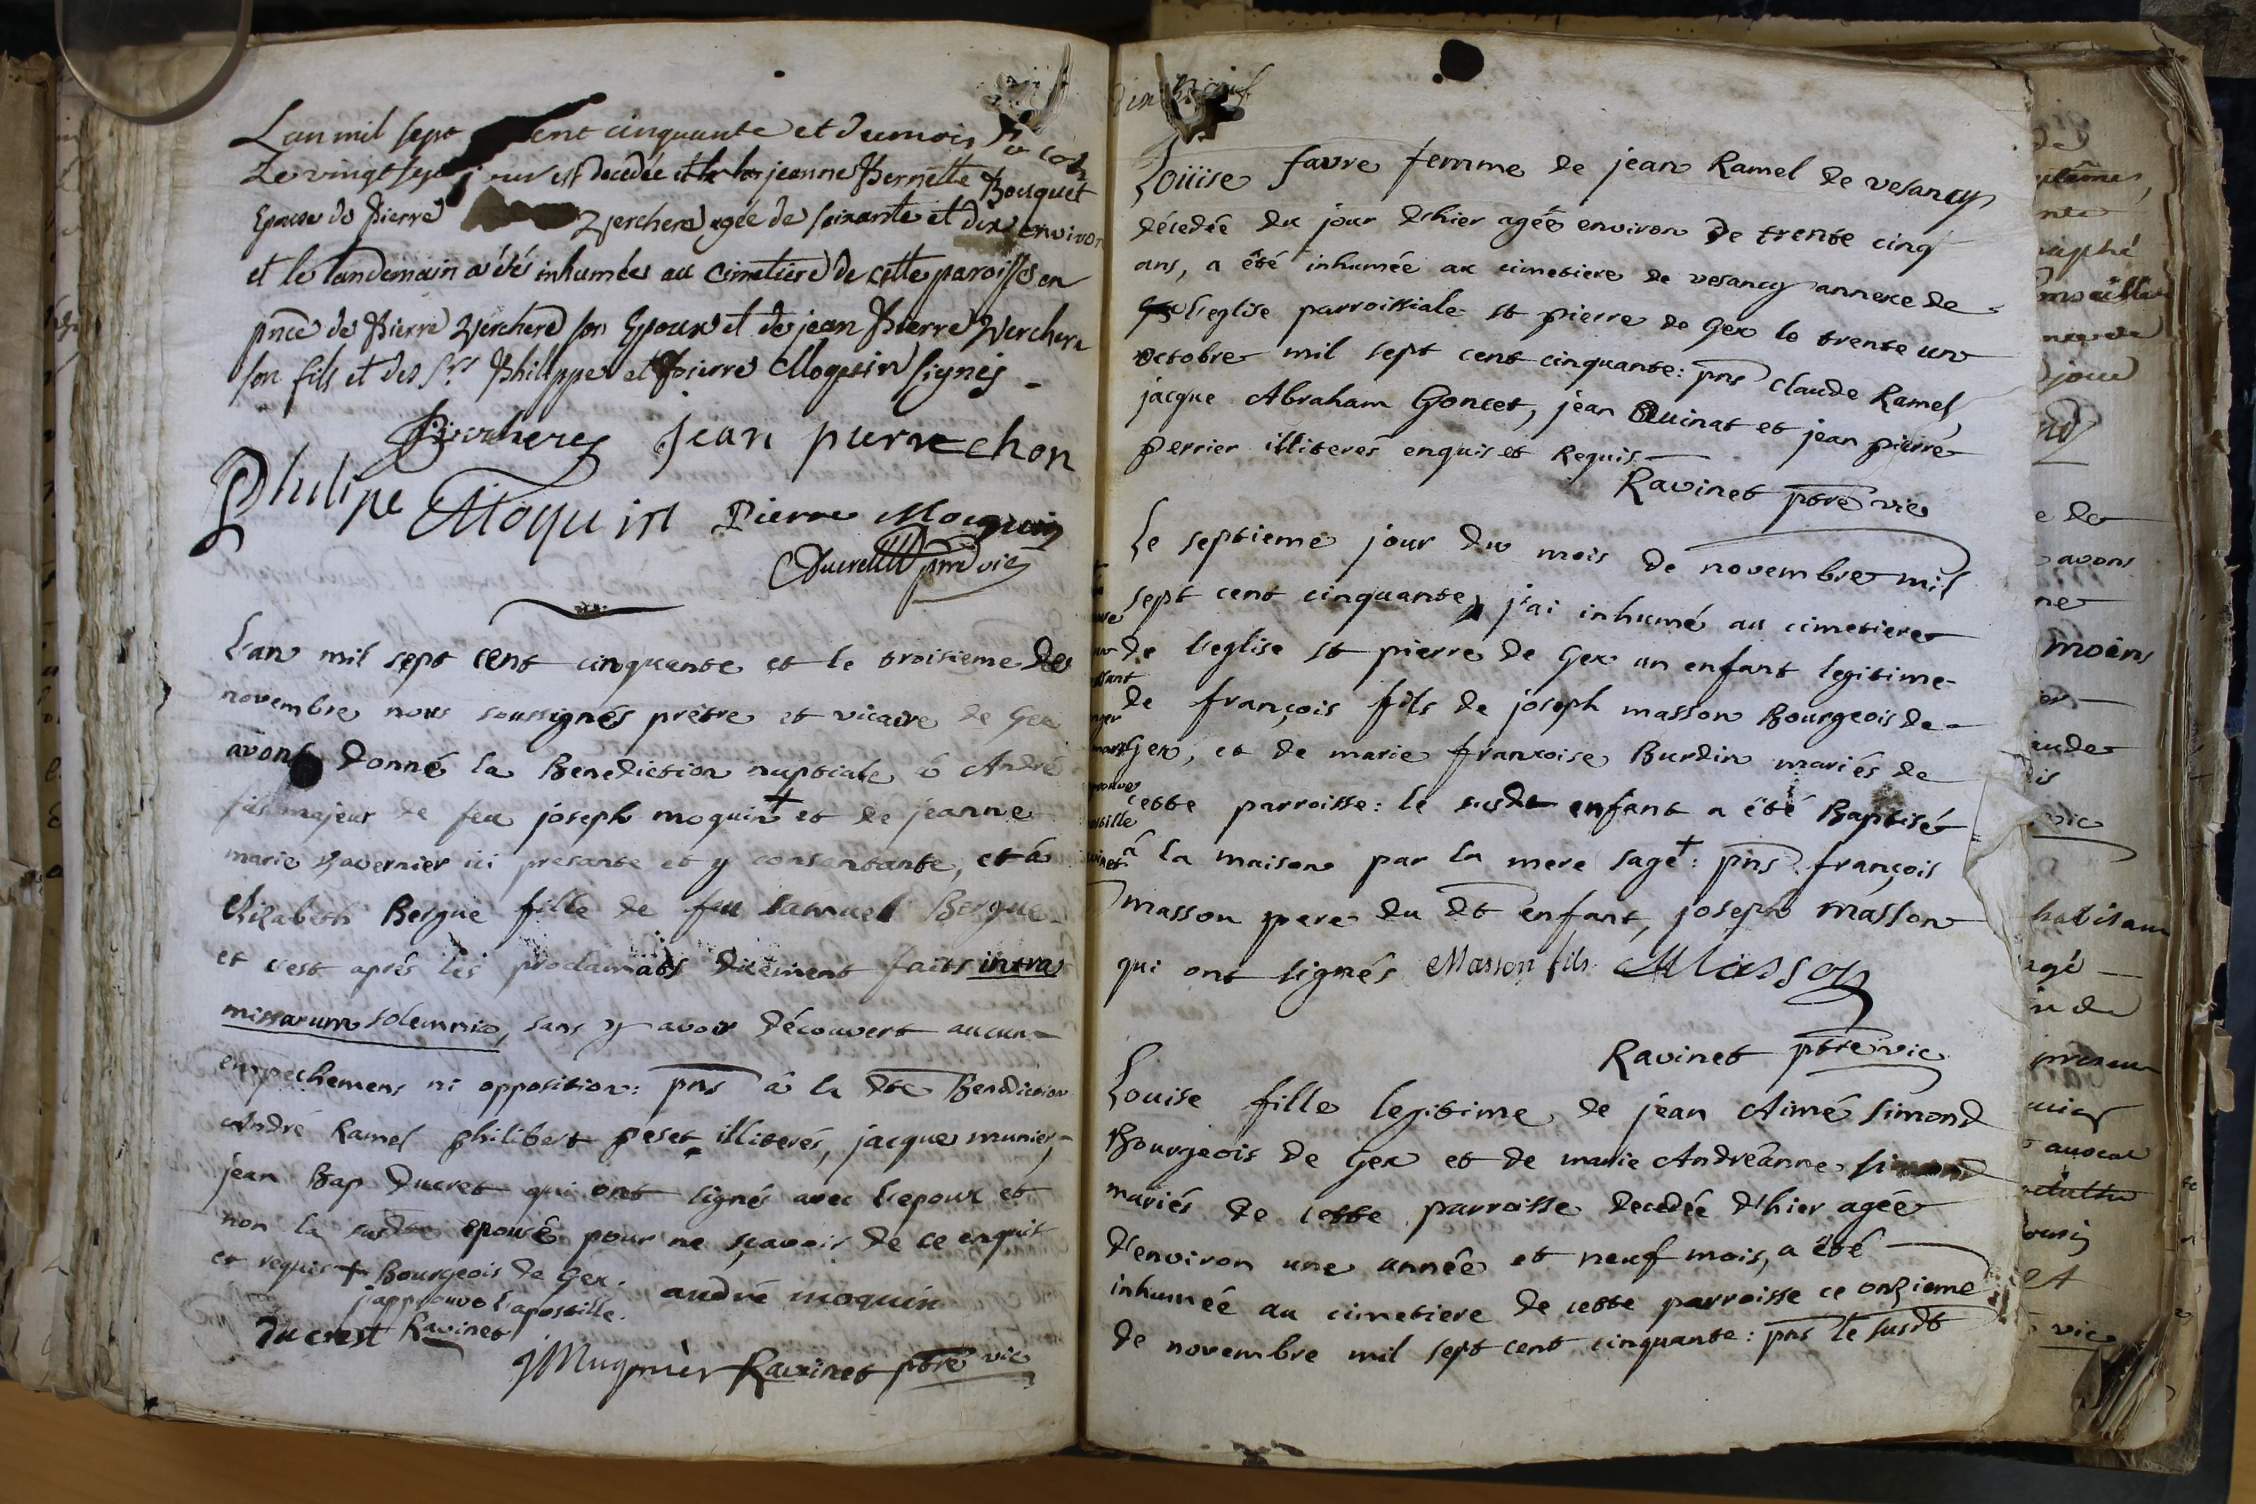 Lan mil sept cent cinquante et du mois
Le vingt sept jour est decedée jeanne Pernette Bouquet
Epouse de Pierre Verchere agée de soixante et dix environ
et le landemain a étés inhumées au Cimetiere de cette paroisse en
pnce de Pierre Verchere son Epoux et de jean Pierre Verchere
son fils et des Srs Philippe et Pierre Moquin signés -
P Vercheres jean pierre chon
Philipe Moquin Pierre Moquin
Ducret ptre vic
Lan mil sept cent cinquante et le troisieme de
novembre nous soussignés prêtre et vicaire de Gex
avons donné la Benediction nuptiale à André
fils majeur de feu joseph moquin + et de jeanne
marie Tavernier ici presante et y consentante, et à
Elizabeth Bergue fille de feu Samuel Bergue
et c'est aprés les proclamats düement faits intra
missarum solemnia, sans y avoir découvert aucun
empechemens ni opposition: pns à la dte Benediction
André Ramel philibert peset illiterés, jacque munier,
jean Bap Ducret qui ont signés avec l'epoux et
non la susdte epouse pour ne sçavoir de ce enquit
et requis + Bourgeois de Gex. andré moquin
j'approuve l'apostille.
Ducrest Ravinet
JMugnier Ravinet ptre vic
Loüise favre femme de jean Ramel de vesancy
décedée du jour d'hier agée environ de trente cinq
ans, a été inhumée au cimetiere de vesancy annexe de
l'eglise parroissiale st pierre de Gex le trente un
octobre mil sept cent cinquante: pns Claude Ramel,
jacque Abraham Goncet, jean Quinat et jean pierre
perrier illiterés enquis et Requis
Ravinet ptre vic
Le septieme jour du mois de novembre mil
sept cent cinquante, j'ai inhumé au cimetiere
de l'eglise st pierre de Gex un enfant legitime
de françois fils de joseph masson Bourgeois de
Gex, et de marie francoise Burdin mariés de
cette parroisse: le susdt enfant a été Baptisé
à la maison par la mere sage +: pns françois
masson pere du dt enfant, joseph masson
qui ont signés Masson fils Masson
Ravinet ptre vic
Louise fille legitime de jean Aimé Simond
Bourgeois de Gex et de marie Andréanne simond
mariés de cette parroisse decedée d'hier agée
d'environ une année et neuf mois, a été
inhumée au cimetiere de cette parroisse ce onzieme
de novembre mil sept cent cinquante: pns le susdt